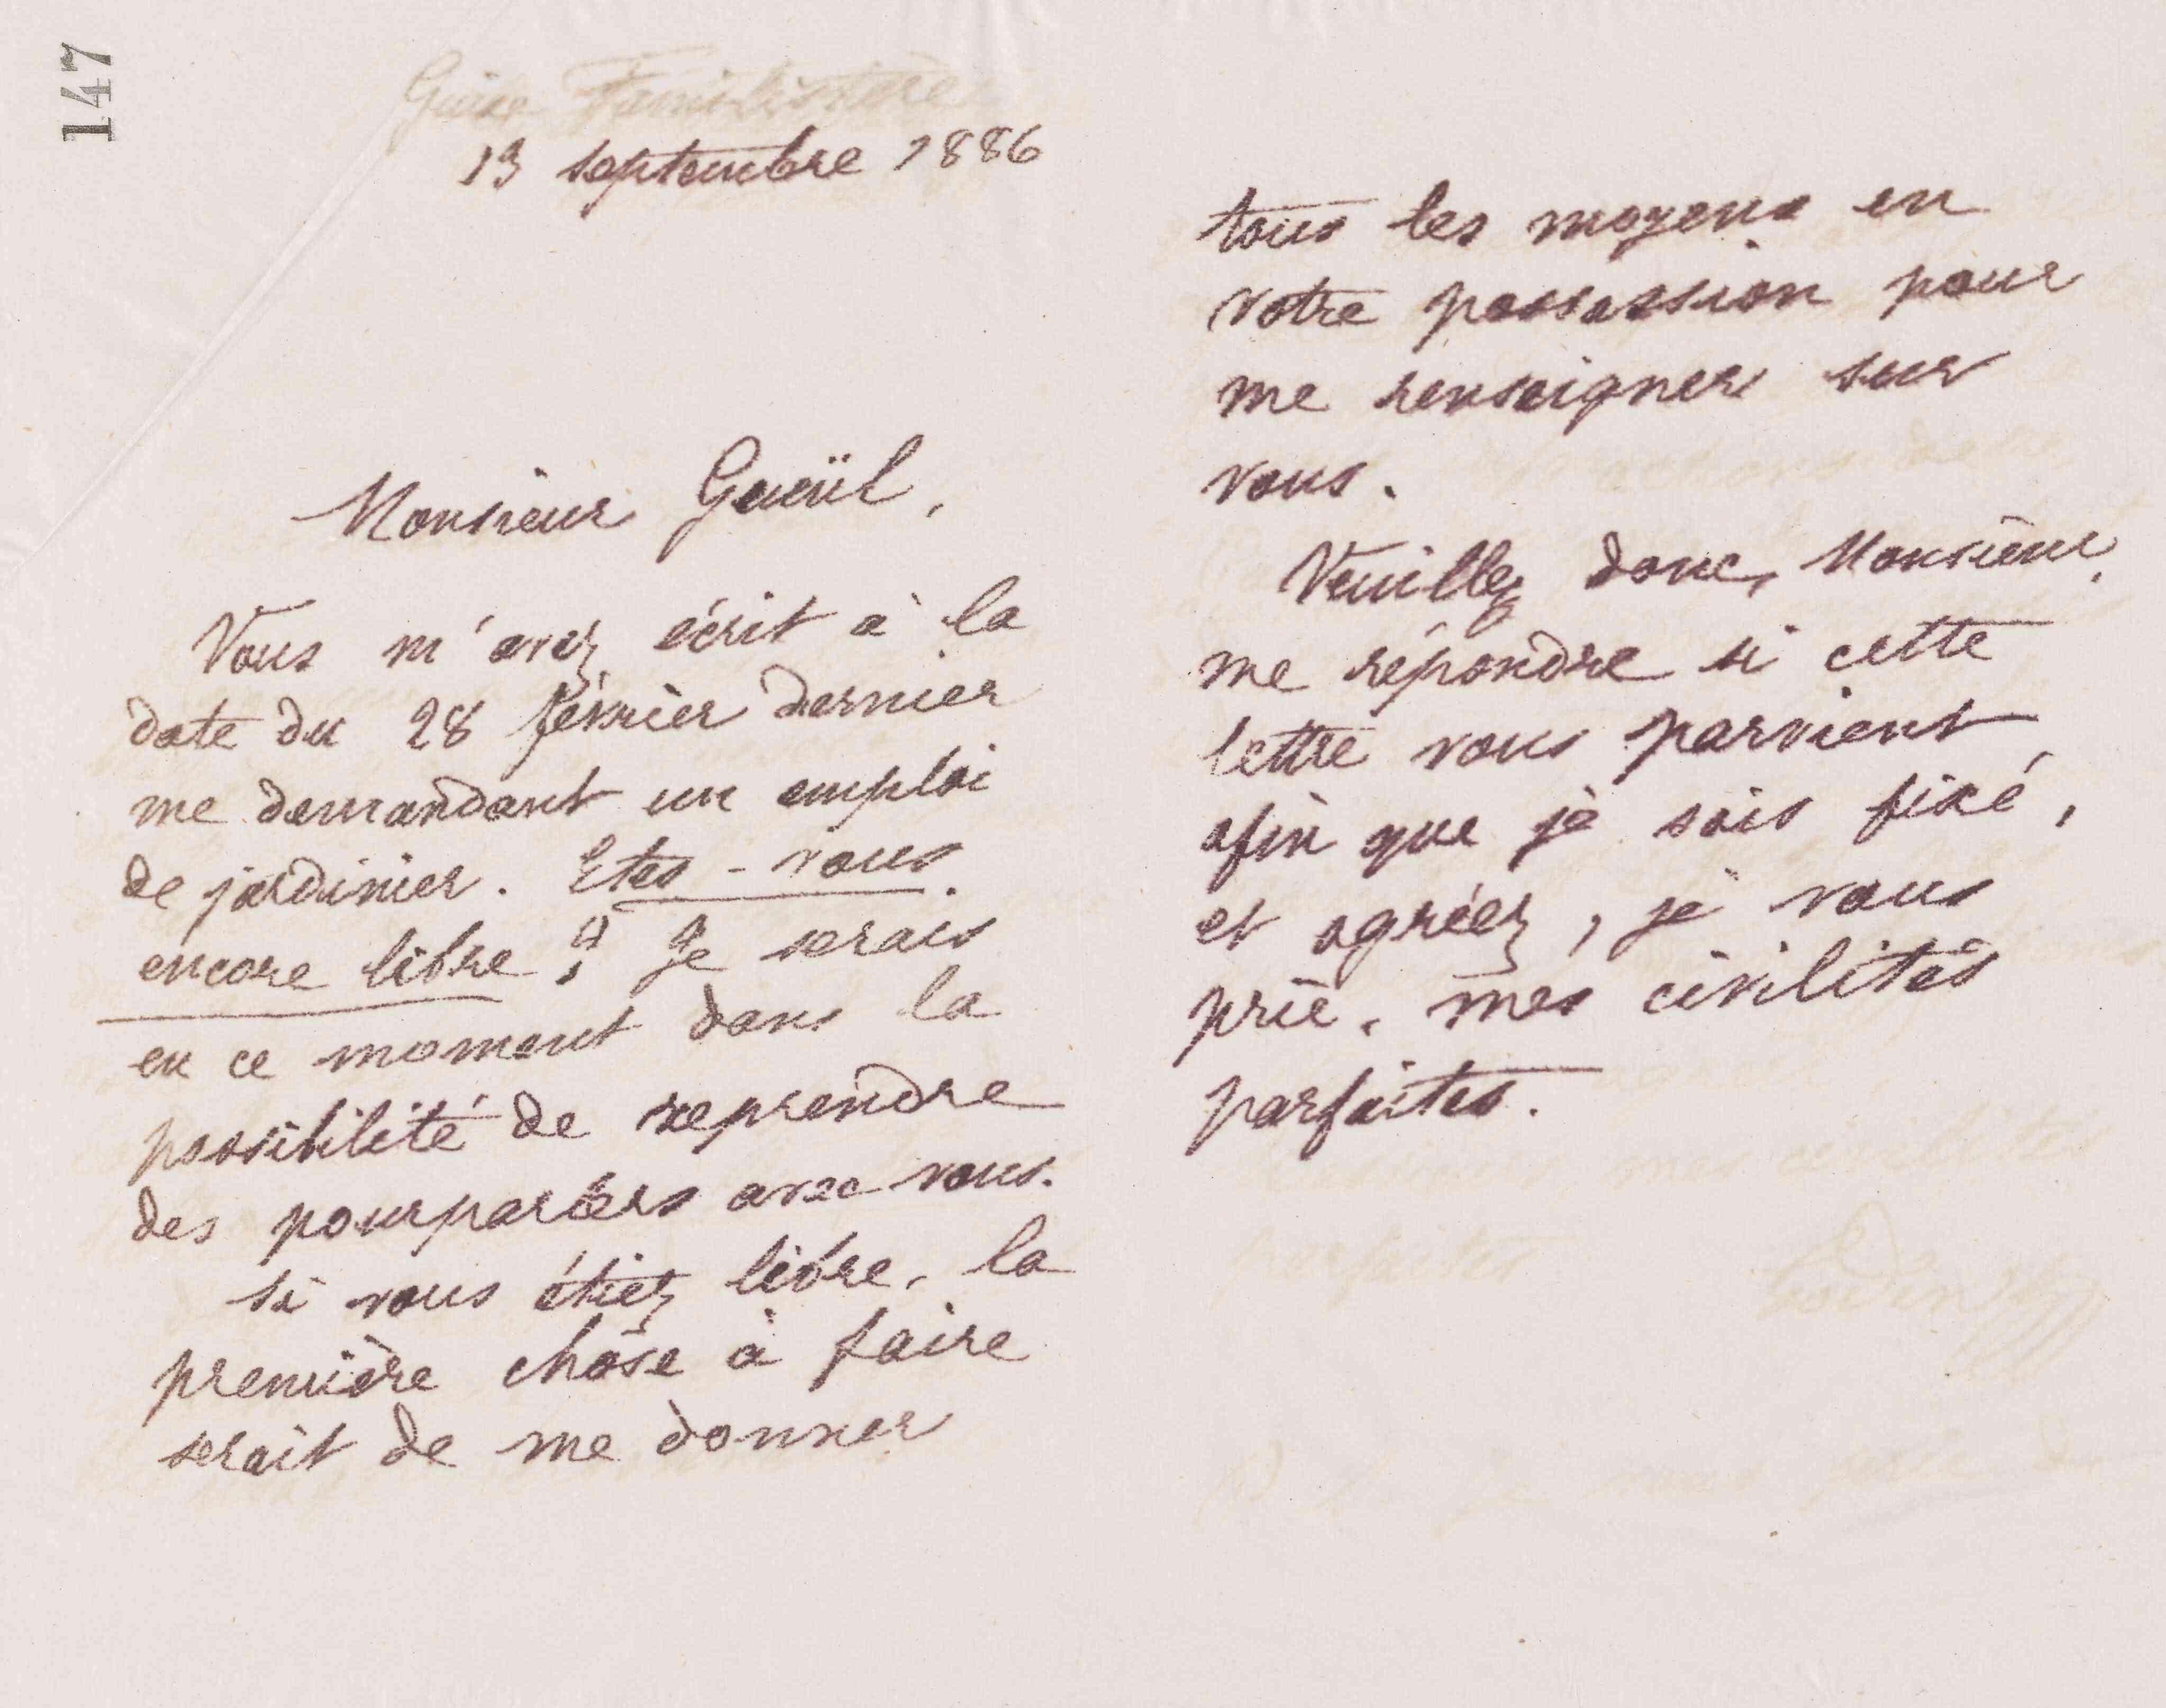 147
Guise Familistère
13 septembre 1886
Monsieur Gueüil,
Vous m'avez écrit à la
date du 28 février dernier
me demandant un emploi
de jardinier. Etes-vous
encore libre ? Je serais
en ce moment dans la
possibilité de reprendre
des pourparlers avec vous.
Si vous étiez libre, la
première chose à faire
serait de me donner
tous les moyens en
votre possession pour
me renseigner sur
vous.
Veuillez donc, Monsieur,
me répondre si cette
lettre vous parvient,
afin que je sois fixé,
et agréez, je vous
prie, mes civilités
parfaites.
Godin